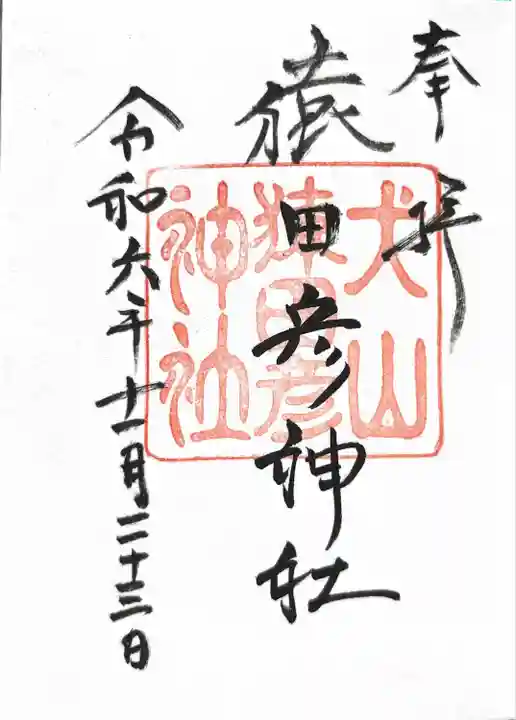 奉拝
猿田彦神社
令和六年十一月二十三日
犬山
猿田彦
神社